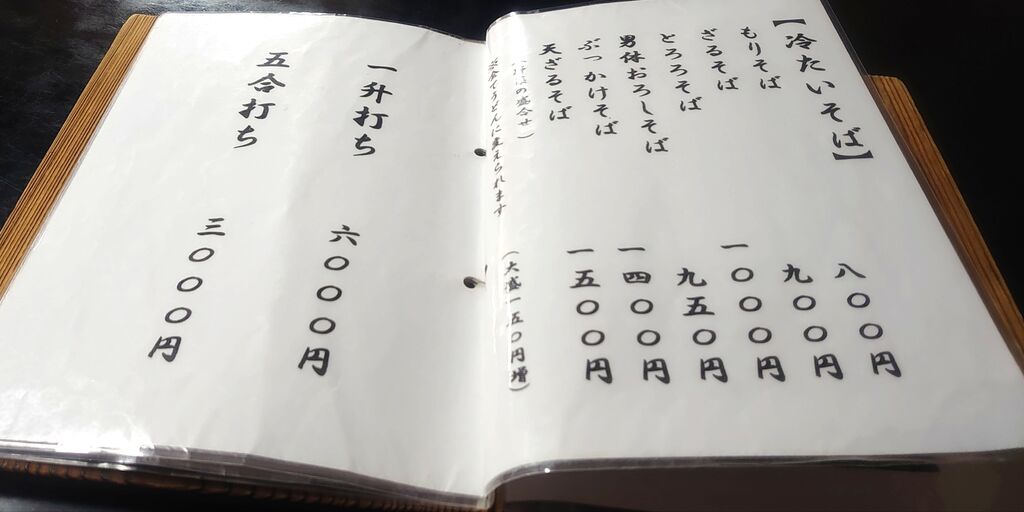 【冷たいそば】
もりそば 八〇〇円
ざるそば 九〇〇円
とろろそば 一〇〇〇円
男体おろしそば 九五〇円
ぶっかけそば 一四〇〇円
天ざるそば 一五〇〇円
の盛合せ）
うどんに変えられます （大盛一五〇円増）
一升打ち 六〇〇〇円
五合打ち 三〇〇〇円